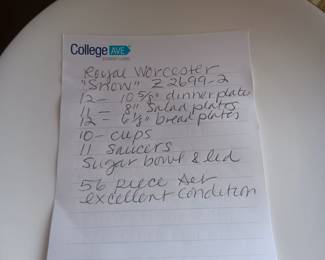 College AVE
STUDENT LOANS
Royal Worcester
"Snow" Z2699-2
12 - 10 5/8" dinner plate
11 - 8" Salad plates
12 = 6 1/4" bread plates
10 - cups
11 saucers
Sugar bowl & lid
56 piece set
excellent condition